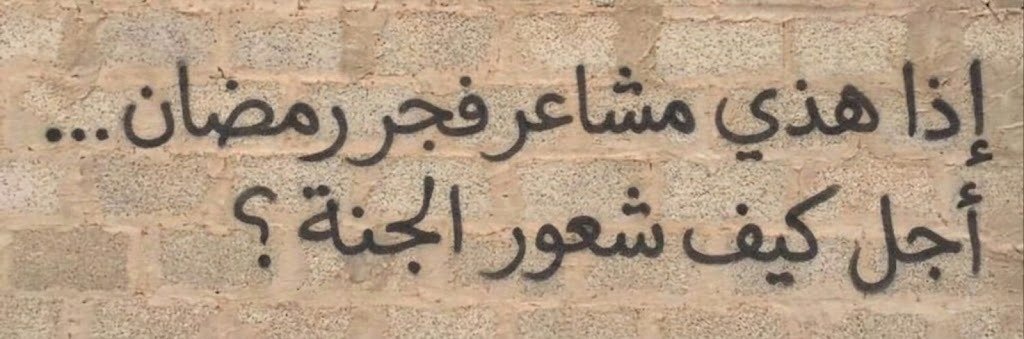 إذا هذي مشاعر فجر رمضان...
أجل كيف شعور الجنة ؟